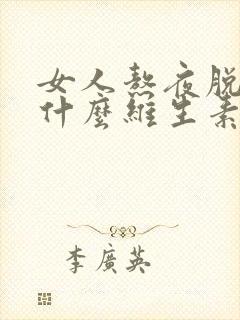 女人熬夜脱
什麼維生素
李廣英